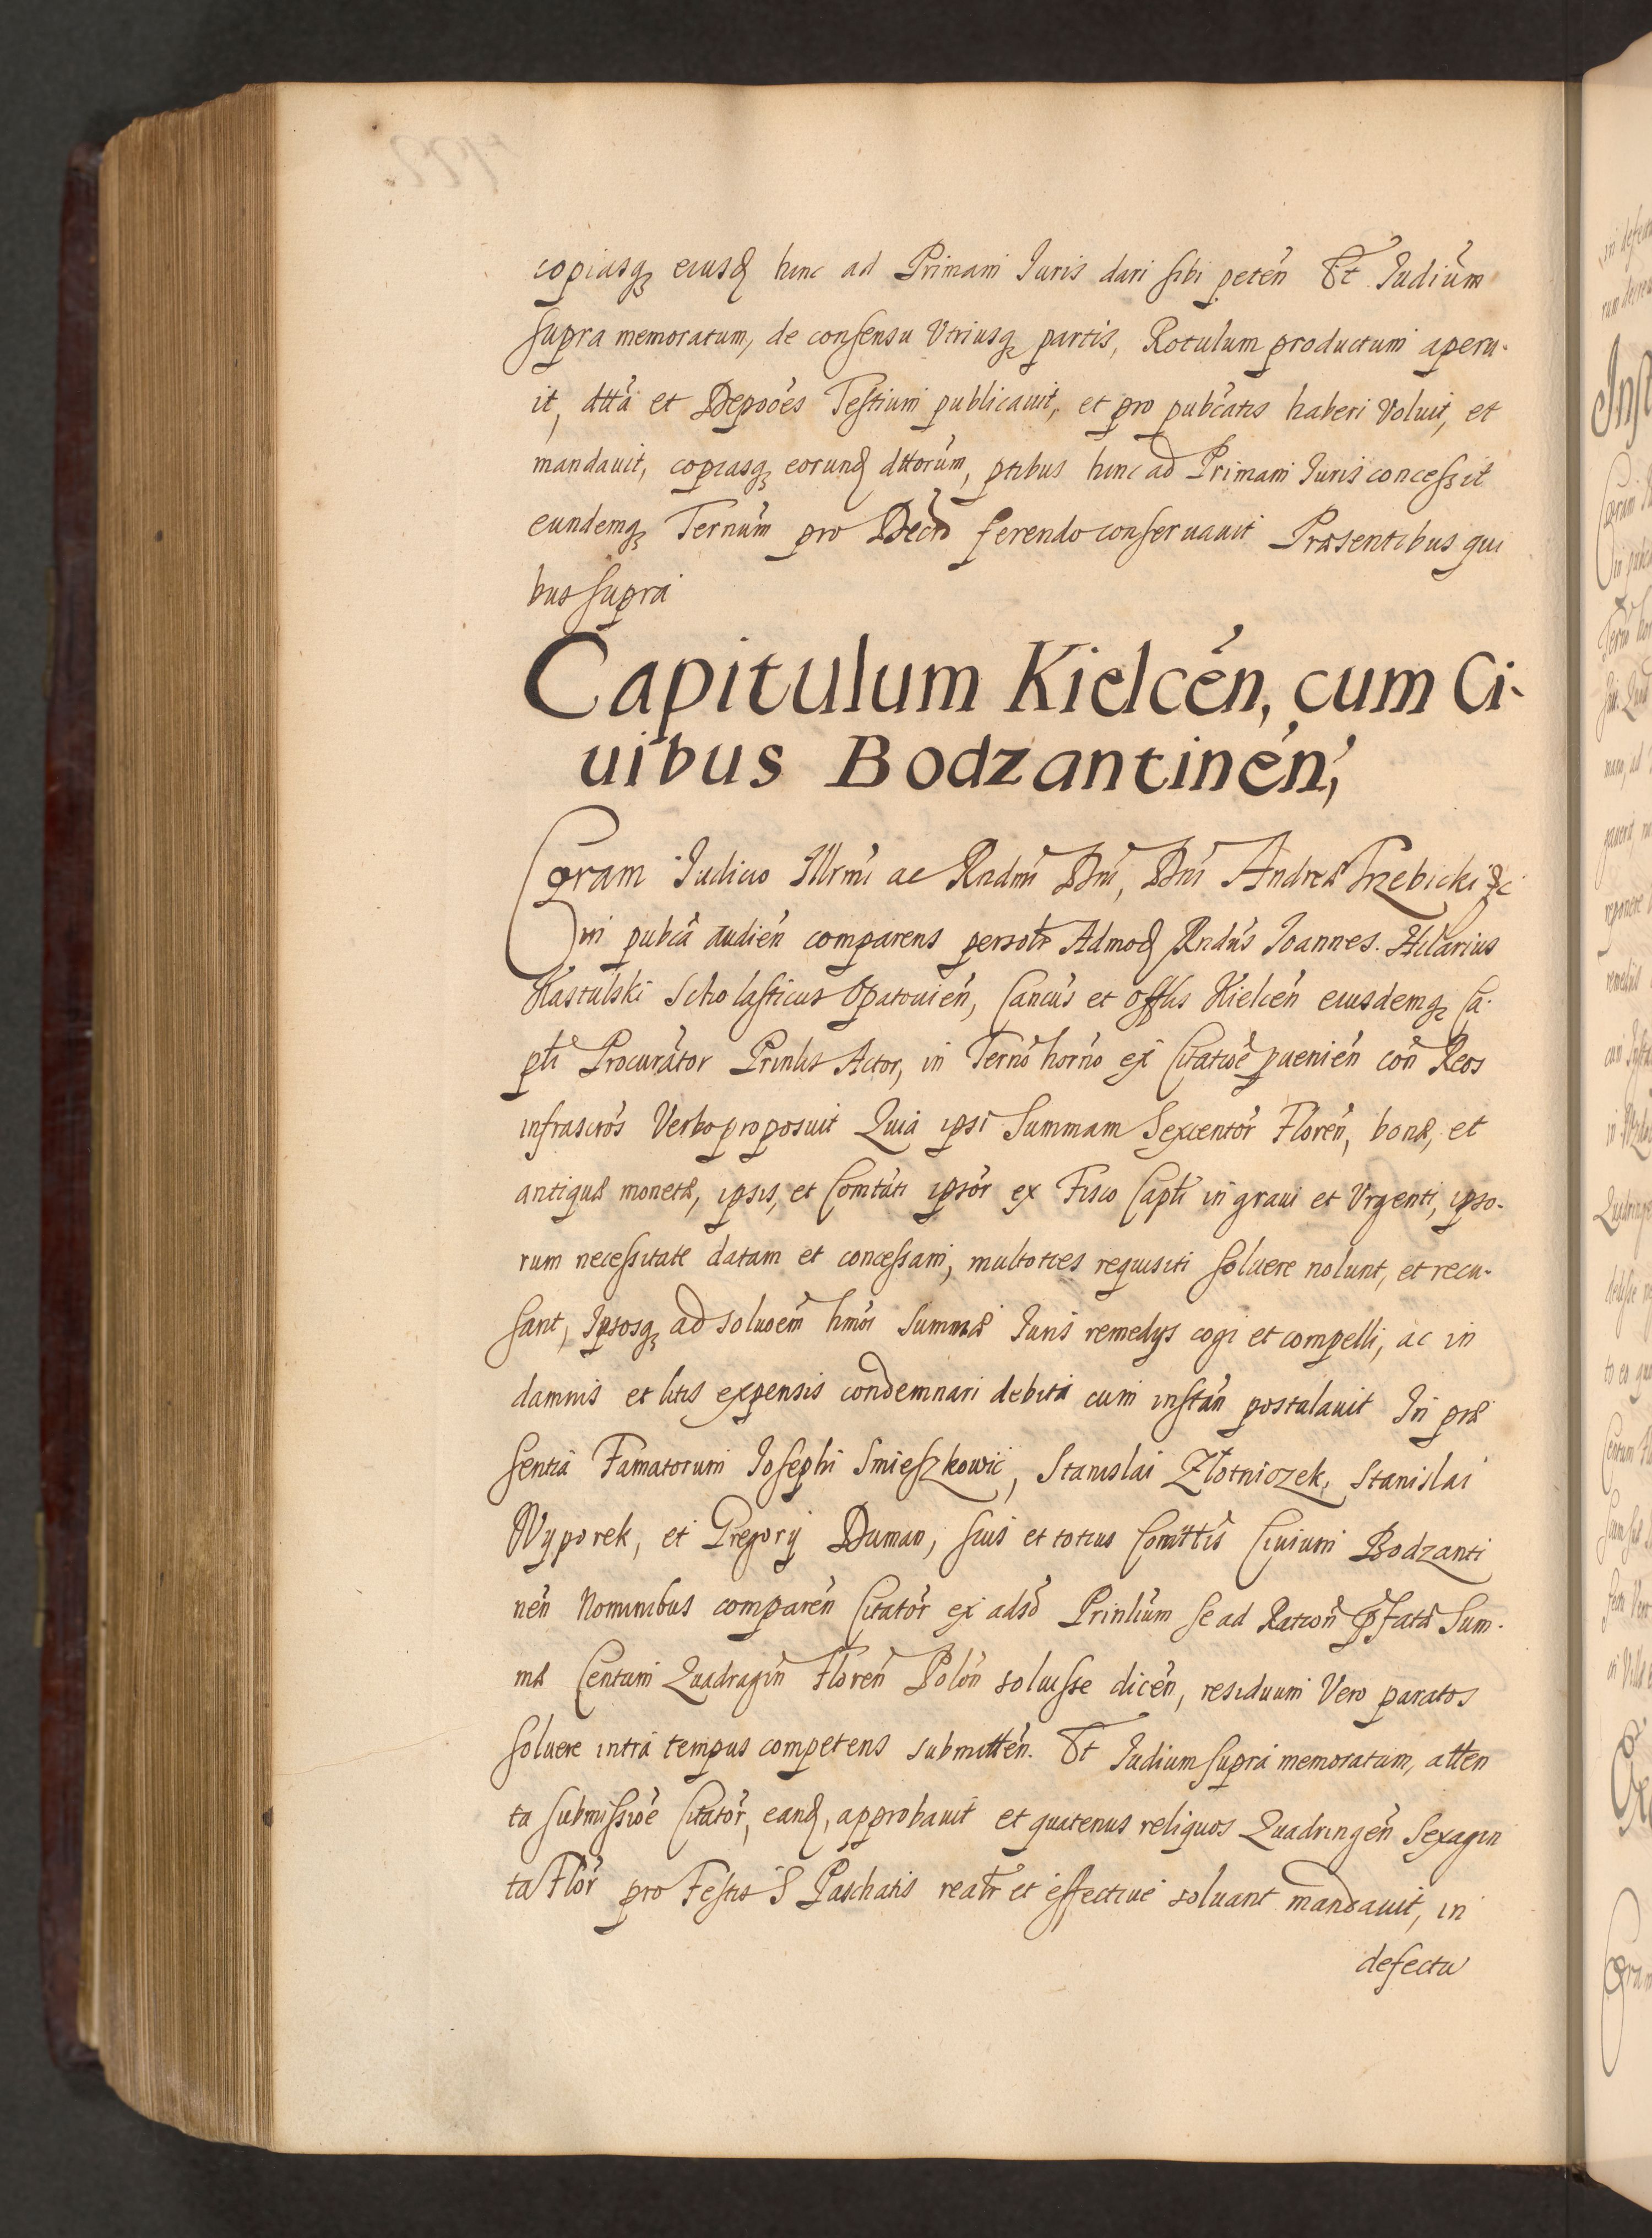 copiasq₃ eiusd hinc ad Primam Iuris dari sibi peteń Et Iudiu̇m
supra memoratum, de consensu Vtriusq₃ partis, Rotulum productum aperu-
it, dtta et Depoo̾es Testium publicauit, et pro pub̾catis haberi Voluit, et
mandauit, copiasq₃ eorund dttoru̇m, ptibus hinc ad Primam Iuris concessit
eundemq₃ Ternu̇m pro Decto ferendo conseruauit Præsentibus qui
bus supra
Capitulum Kielceń, cum Ci-
uibus Bodzantineń,
Coram Iudicio Illrmi ac Rndmi Dni, Dni Andreæ Trzebicki &c
in pubca audień comparens persolr Admod Rndus Ioannes. Hilarius
Kastulski Scholasticus Opatouień, Cancus et Offlis Kielceń eiusdemq₃ Ca-
pli Procurator Prinlis Actor, in Terno horno ex Citatioe puenień con Reos
infrascros Verbo proposuit Quia ipsi Summam Sexcentor Floreń, bonæ, et
antiquæ monetæ, ipsis, et Comtati ipsor ex Fisco Capli in graui et Vrgenti, ipso-
rum necessitate datam et concessam, multoties requisiti soluere nolunt, et recu-
sant, Ipsosq₃ ad soluoem hmoi Summæ Iuris remedys cogi et compelli, ac in
damnis et litis expensis condemnari debita cum instań postulauit In præ
sentia Famatorum Iosephi Smieszkowic, Stanislai Zlotniczek, Stanislai
Wyporek, et Gregorij Duman, suis et totius Comttis Ciuium Bodzanti
neń Nominibus compareń Citator ex adso Prinlium se ad Ratioń Præfatæ Sum-
mæ Centum Quadragiń Floreń Poloń soluisse diceń, residuum Vero paratos
soluere intra tempus competens submitteń. Et Iudium supra memoratum, atten
ta submissioe Citator, eand, approbauit et quatenus reliquos Quadringeń Sexagin
ta Flor pro Festis S Paschatis realr et effectiue soluant mandauit, in
defectu